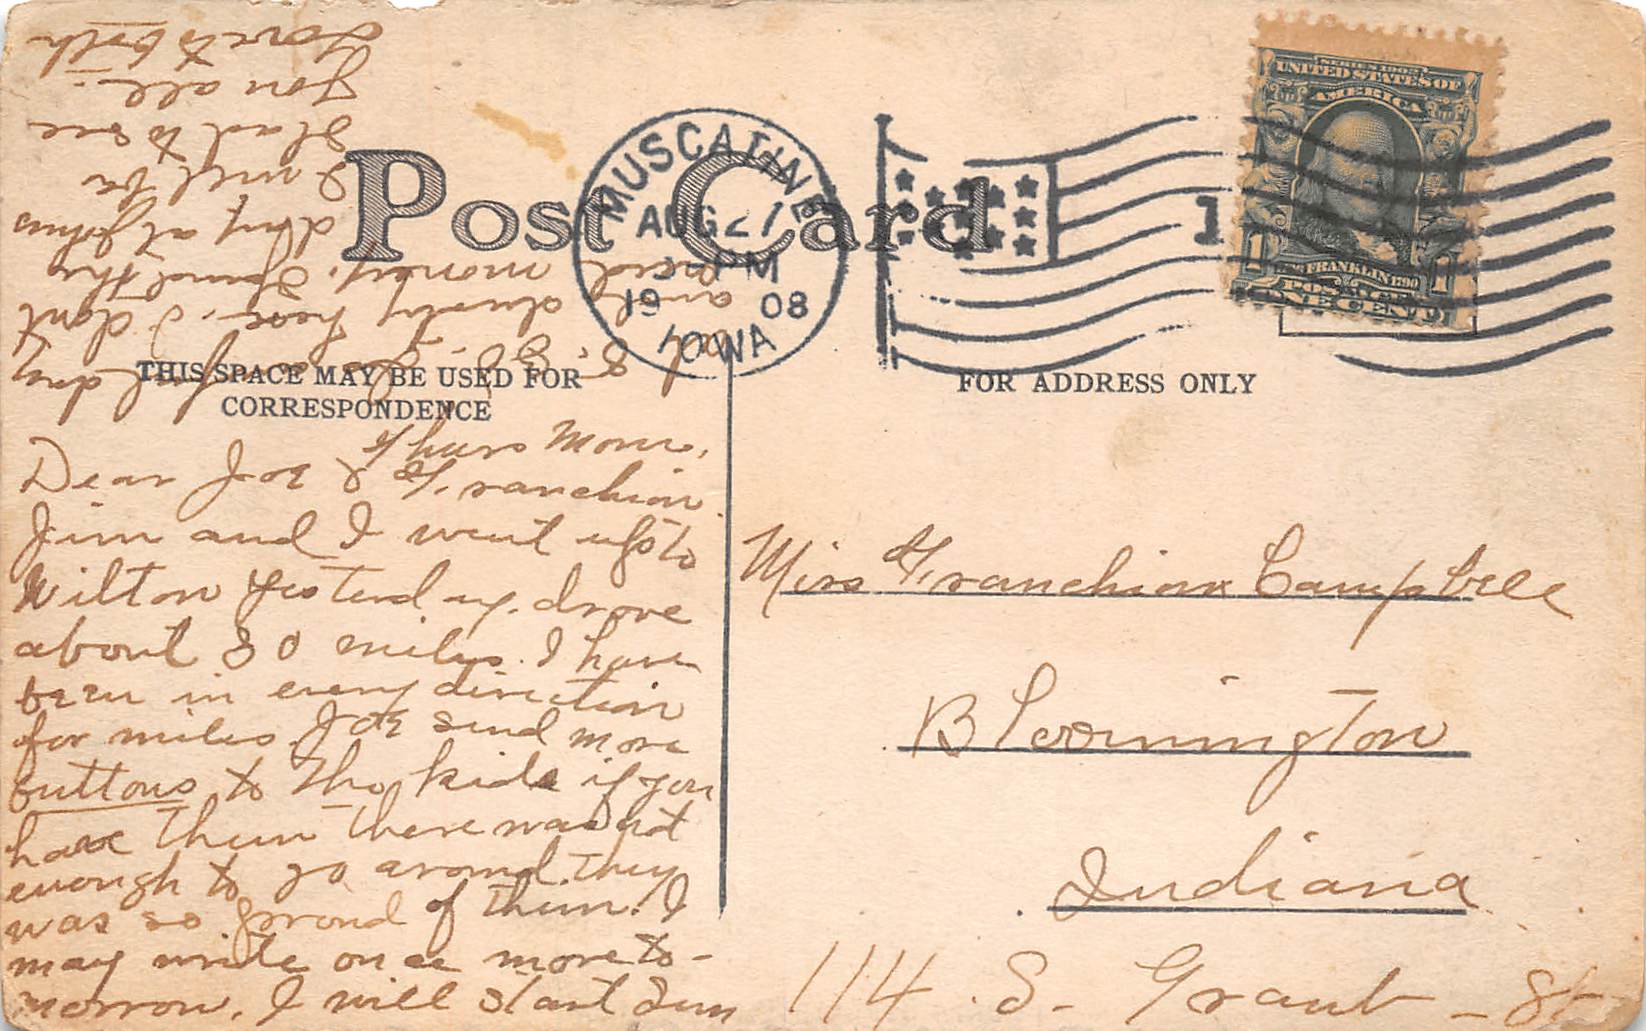 Post Card
MUSCATINE
AUG 27
PM
1908
IOWA
1
SERIES 1902
UNITED STATES OF
AMERICA
FRANKLIN 1790
POSTAGE
1 1
ONE CENT
THIS SPACE MAY BE USED FOR
CORRESPONDENCE
FOR ADDRESS ONLY
Thurs Morn.
Dear Joe & Franchion
Jim and I went up to
Wilton yesterday. drove
about 30 miles. I have
been in every direction
for miles. Joe send more
buttons to the kids if you
have them there was not
enough to go around. They
was so proud of them. I
may write once more to-
morrow. I will start Sun
day
and dusty here. I don't
need money. Spend the
day at Johns
I will be
glad to see
you all.
Love to both
Miss Franchion Campbell
Bloomington
Indiana
114 S. Grant St